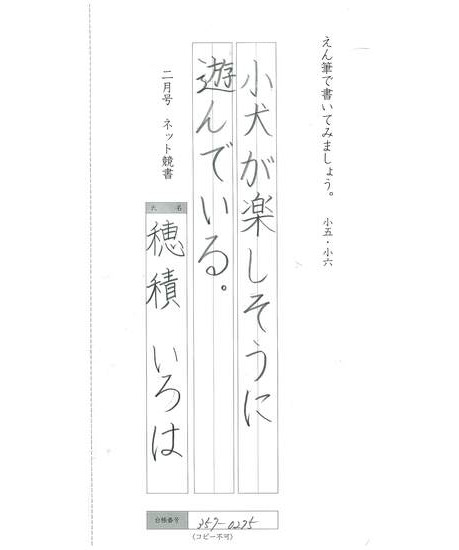 えん筆で書いてみましょう。 小五・小六
小犬が楽しそうに
遊んでいる。
二月号 ネット競書
氏名
穂積 いろは
台帳番号
357-0275
(コピー不可)